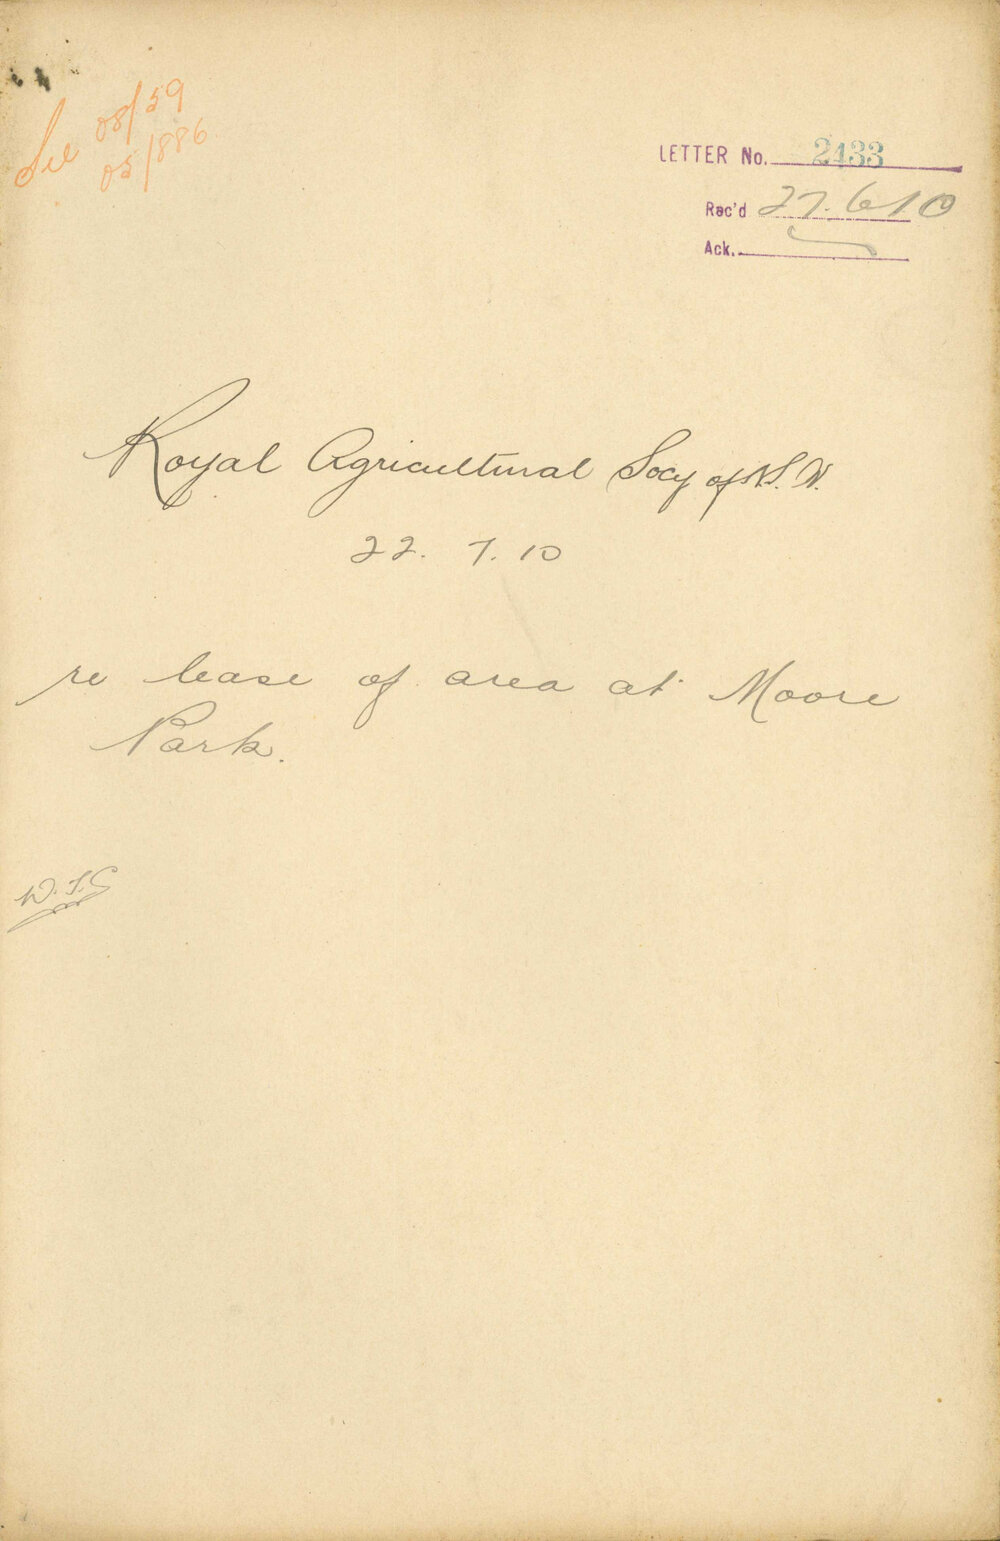 See 08/59
05/886
LETTER No. 2433
Rec'd 27.6.10
Ack.
Royal Agricultural Socy of N.S.W.
22. 7. 10
re lease of area at Moore
Park.